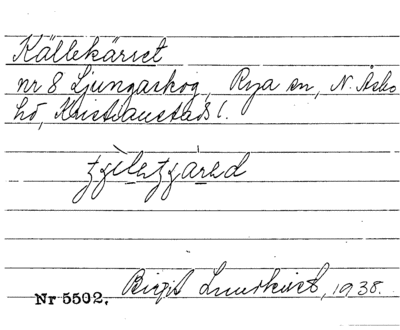 Källekärret
nr 8 Ljungaskog, Rya sn, N. Åsbo
hd, Kristianstads l.
Birgit Lundkvist, 1938.
Nr 5502.